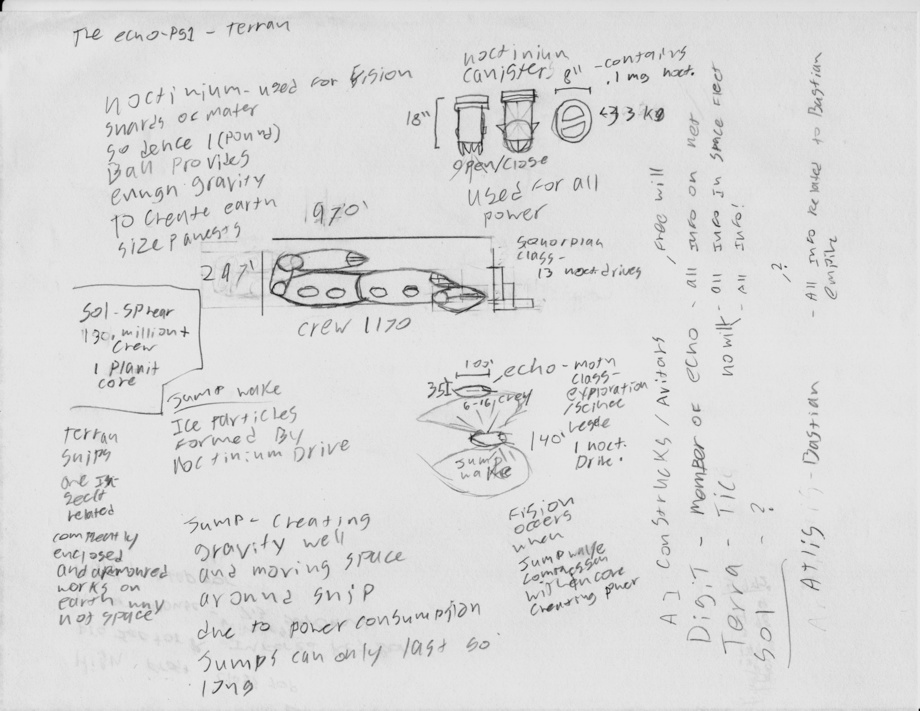 The echo-PS1 - Terran
noctinium - used for Fision
shards of mater
so dence 1 (pound)
Ball Provides
enugh gravity
to create earth
size planets
noctinium
canister
8"
-contains
.1 mg noct.
18"
33 kg
open/close
used for all
power
970'
297'
class-
13 noct drives
crew 1170
Sol-Sphear
130, million+
crew
1 Planit
core
sump wake
Ice Particles
formed By
Noctinium Drive
terran
ships
are In-
sect
related
compleatly
enclosed
and armoured
works on
earth why
not space
100'
35
6-16 crew
echo - moth
class-
exploration
/science
1 noct.
Drive.
140'
sump
wake
Sump - creating
gravity well
and moving space
around ship
due to power consumpsion
Sumps can only last so
long
Fision
occers
when
sump wave
with core
creating power
AI constructs / Avitars
, Free will
Digit - member of echo - all info on net
Terra - TIC - All Info In space Fleet
no will - All Info!
Sol - ?
?
- Bastian
- All Info related to Bastian
empire